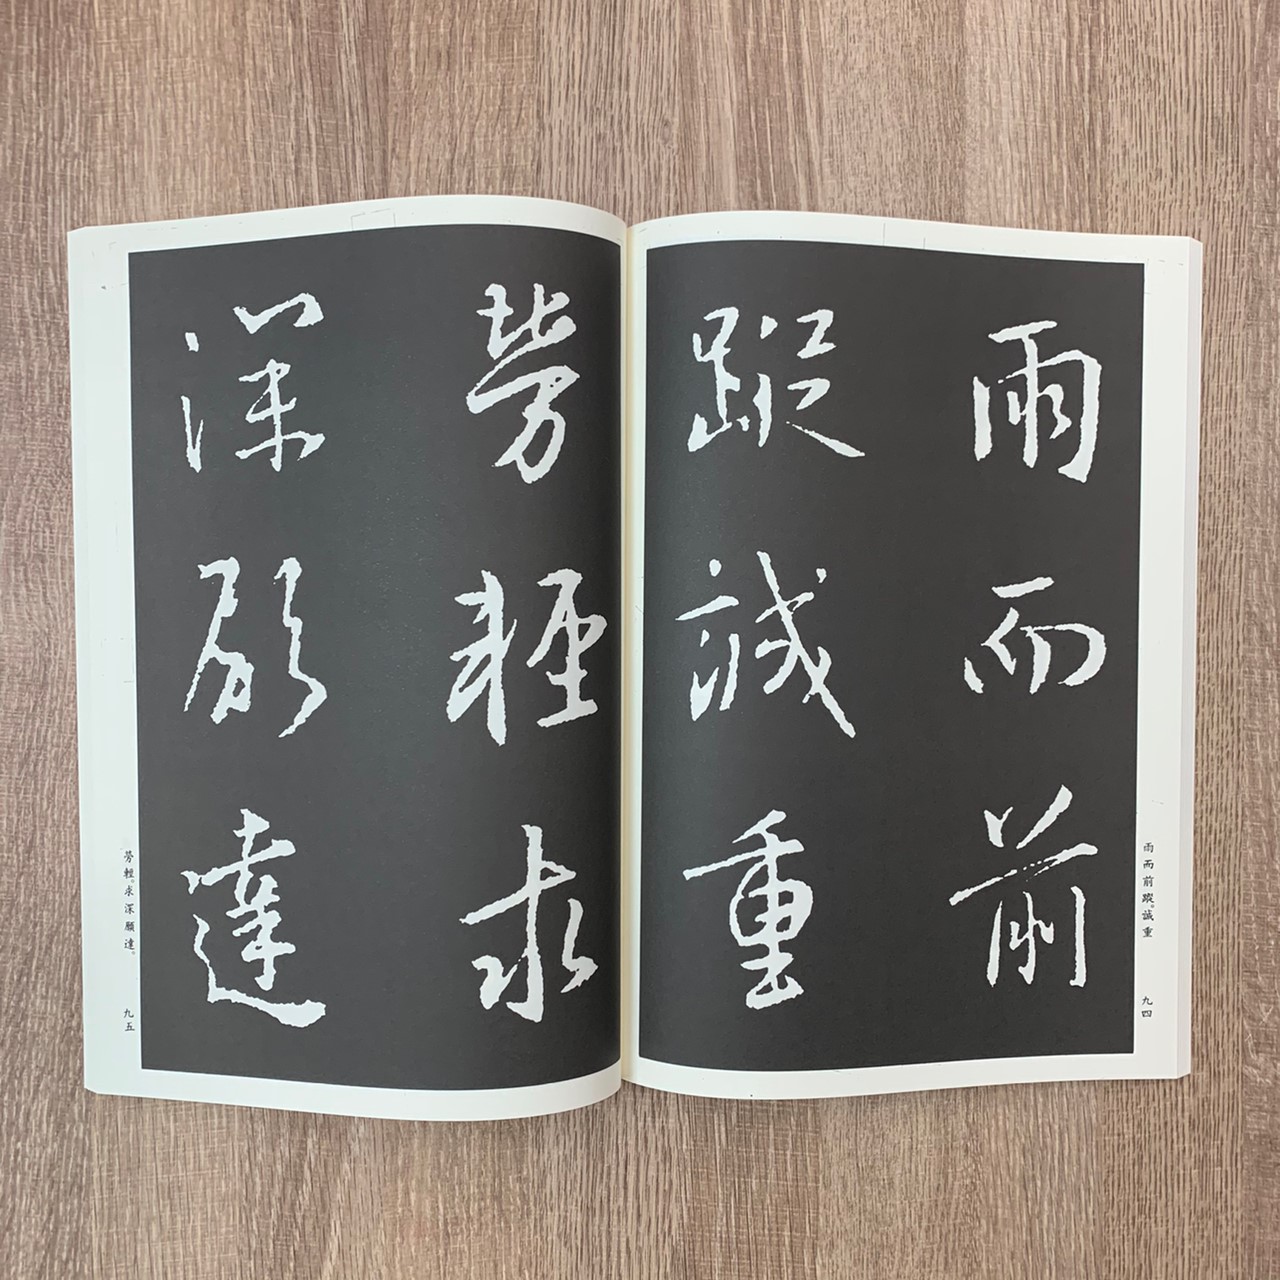 雨而前
蹤誠重
雨而前蹤。誠重
九四
勞輕求
深願達
勞輕。求深願達。
九五